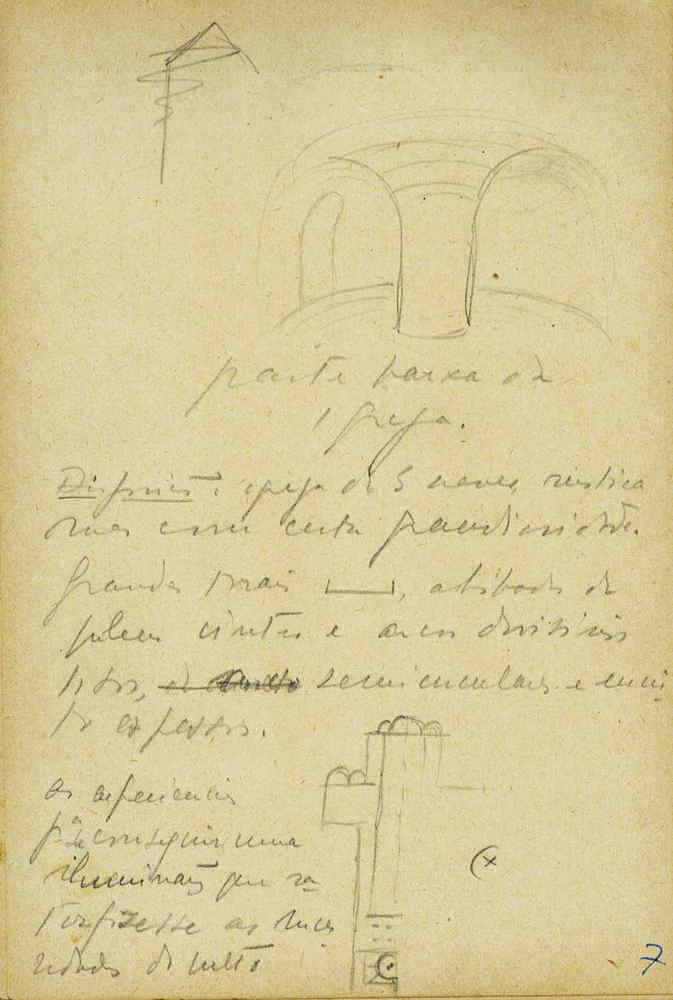 parte baixa da
igreja.
igreja de 5 naves, rustica
mas com certa grandiosidade.
Grandes , abobada de
pleno cintro e arcos divisorios
semicirculares e mui
to espessos.
as esperiencias
p.ª se conseguir uma
iluminaçã que sa
tisfizesse as neces
sidades do culto
7